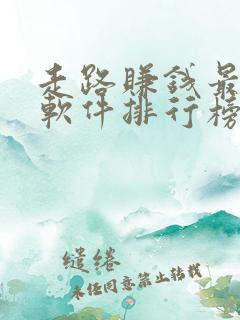 走路賺錢最
軟件排行榜
缱绻
未经同意禁止转载